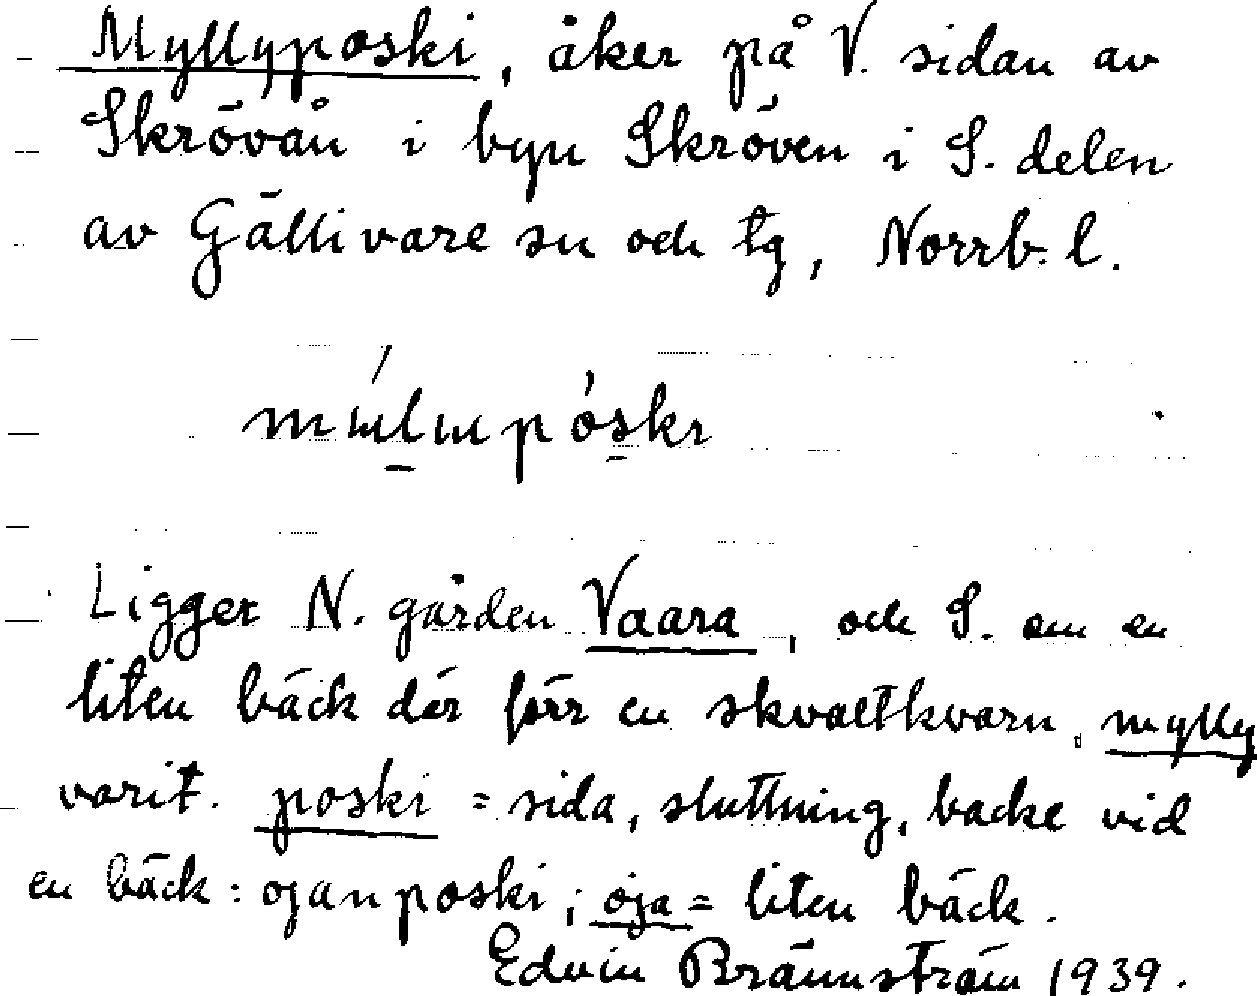 Myllyposki, åker på V. sidan av
Skrövån i byn Skröven i S. delen
av Gällivare sn och tg, Norrb. l.
Ligger N. gården Vaara, och S. om en
liten bäck där förr en skvaltkvarn, mylly
varit. poski = sida, sluttning, backe vid
en bäck: ojanposki; oja = liten bäck.
Edvin Brännström 1939.